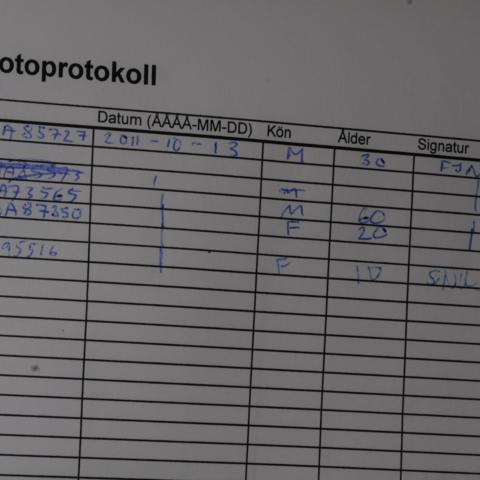 otoprotokoll
Datum (ÅÅÅÅ-MM-DD) Kön Ålder Signatur
A85727 2011-10-13 M 30
A73565 M 60
A87350 F 20
95516 F 10